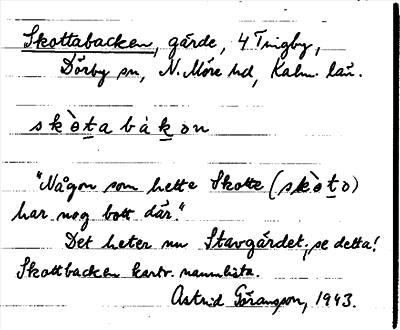 Skottabacken, gärde, 4 Tingby,
Dörby sn, N. Möre hd, Kalm. län.
skòta bàkon
"Någon som hette Skotte (skòto)
har nog bott där."
Det heter nu Stavgärdet, se detta!
Skottbacken kartr. namnlista.
Astrid Göransson, 1943.